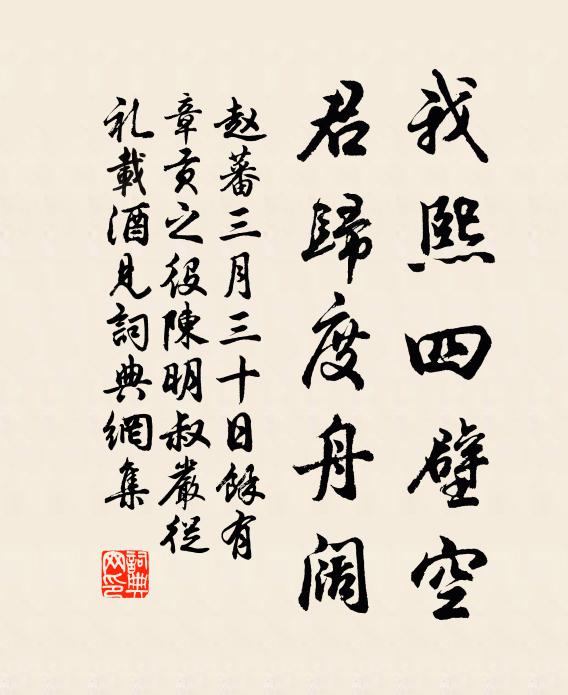 我熙四壁空
君歸度舟阔
赵蕃三月三十日餘有
章贡之役陳明叔嚴從
礼載酒見詞典網集
詞典
网印